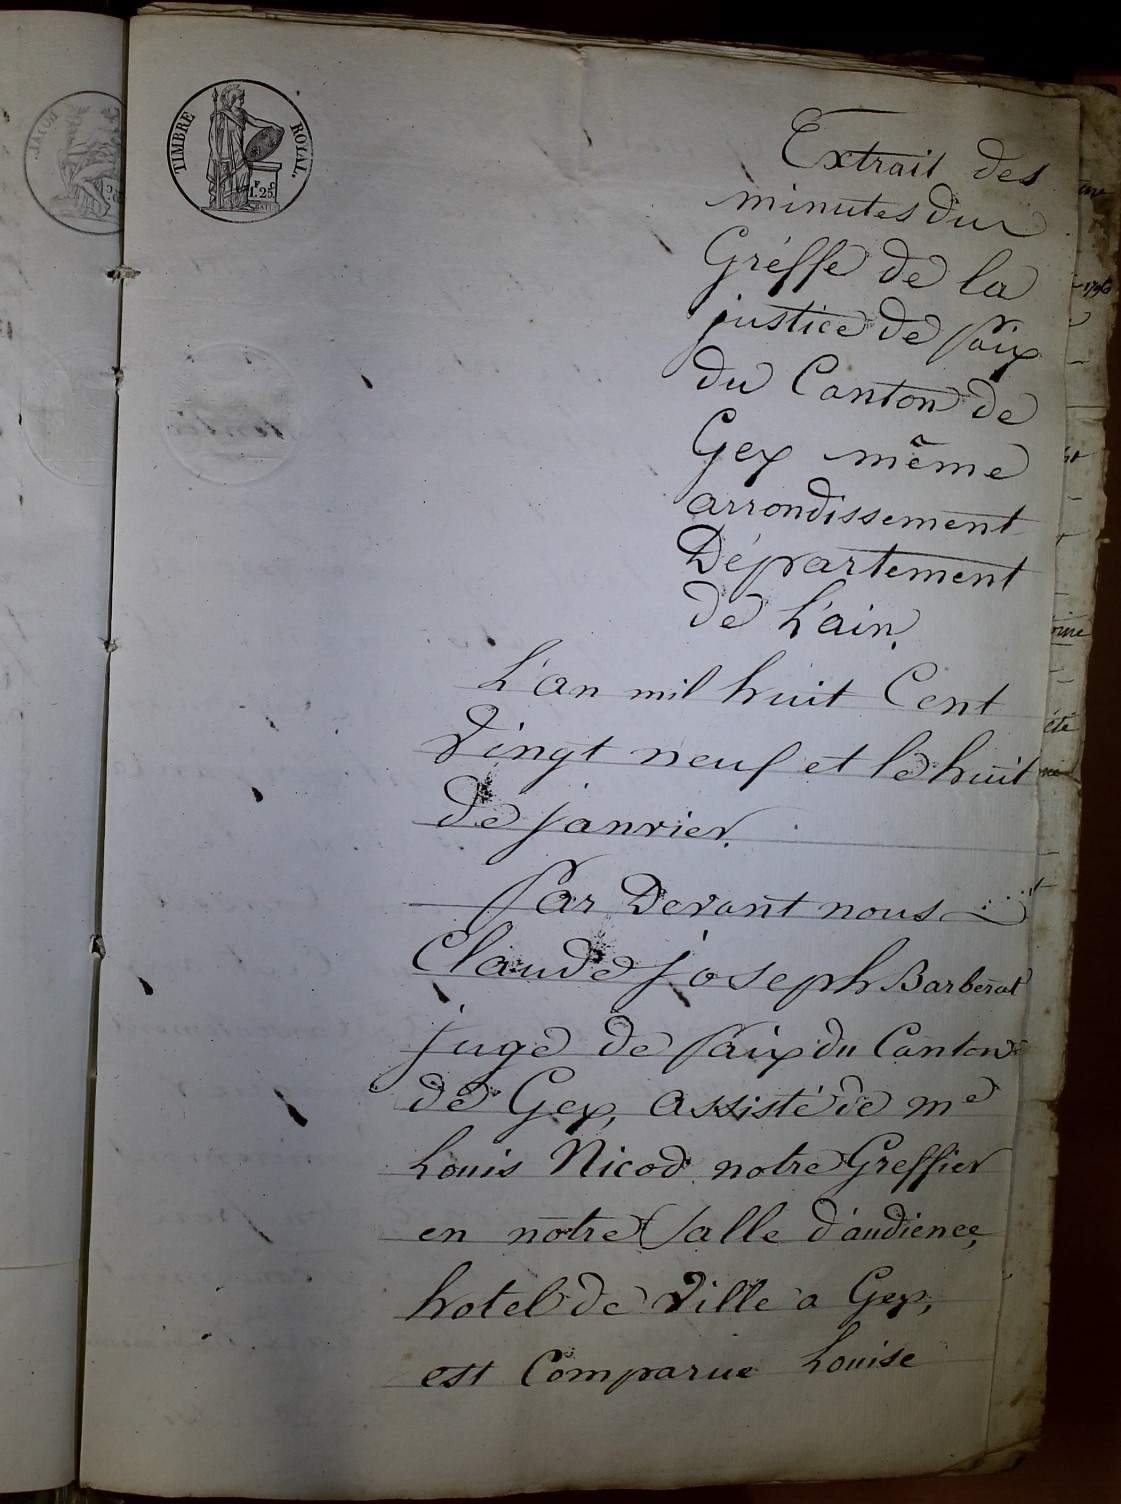 TIMBRE ROYAL.
1 F. 25 C.
Extrait des
minutes du
Gréffe de la
justice de paix
du Canton de
Gex même
arrondissement
Département
de L'ain.
L'an mil huit Cent
Vingt neuf et le huit
de janvier.
Par Devant nous
Claude joseph Barberat
juge de paix du Canton
de Gex, assisté de me
Louis Nicod notre Greffier
en notre Salle d'audience,
hotel de Ville a Gex,
est Comparue Louise